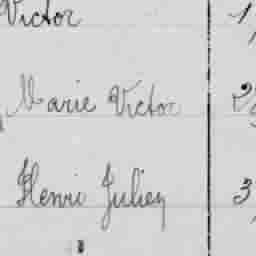 Victor 1
Marie Victor 2
Henri Julien 3